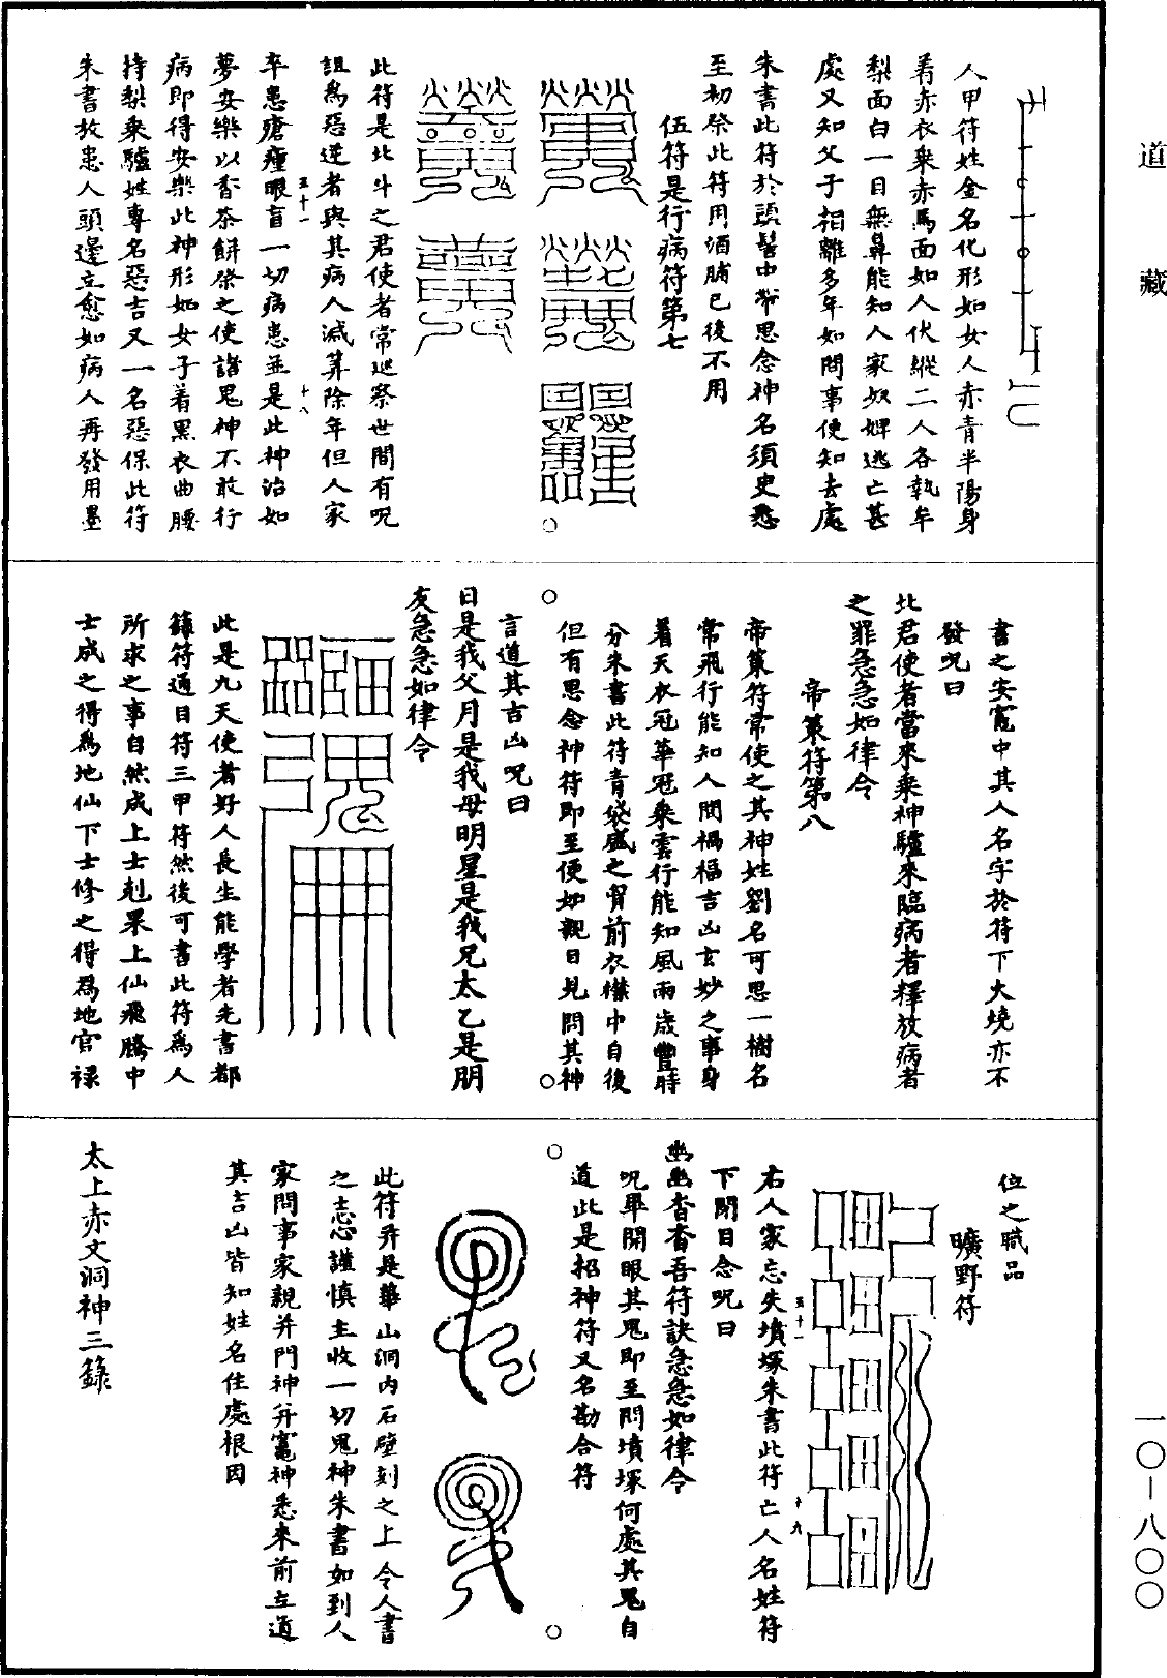 道藏
人甲符姓金名化形如女人赤青半陽身
着赤衣乘赤馬面如人伏縱二人各執牟
梨面白一目無鼻能知人家奴婢逃亡甚
處又知父子相離多年如問事便知去處
朱書此符於頭髻中常思念神名須臾悉
至初祭此符用酒脯已後不用
伍符是行病符第七
此符是北斗之君使者常巡察世間有呪
詛為惡逆者與其病人減筭除年但人家
五十一
十八
卒患瘡瘇眼盲一切病患並是此神治如
夢安樂以香茶餅祭之使諸鬼神不敢行
病即得安樂此神形如女子着黑衣曲腰
持梨乘驢姓專名惡吉又一名惡保此符
朱書放患人頭邊立愈如病人再發用墨
書之安竈中其人名字於符下火燒亦不
發呪曰
北君使者當來乘神驢來臨病者釋放病者
之罪急急如律令
帝策符第八
帝策符常使之其神姓劉名可思一樹名
常飛行能知人間禍福吉凶玄妙之事身
着天衣冠華冠乘雲行能知風雨歲豐時
分朱書此符青袋盛之胷前衣襟中自後
但有思念神符即至便如親目見問其神
言道其吉凶呪曰
日是我父月是我母明星是我兄太乙是朋
友急急如律令
此是九天使者好人長生能學者先書都
籙符通目符三甲符然後可書此符為人
所求之事自然成上士剋果上仙飛騰中
士成之得為地仙下士修之得為地官祿
位之職品
曠野符
右人家忘失墳塚朱書此符亡人名姓符
五十一
十九
下閉目念呪曰
幽幽杳杳吾符訣急急如律令
呪畢開眼其鬼即至問墳塚何處其鬼自
道此是招神符又名勘合符
此符并是華山洞內石壁刻之上令人書
之志心謹慎主收一切鬼神朱書如到人
家問事家親并門神并竈神悉來前立道
其吉凶皆知姓名住處根因
太上赤文洞神三籙
一〇—八〇〇